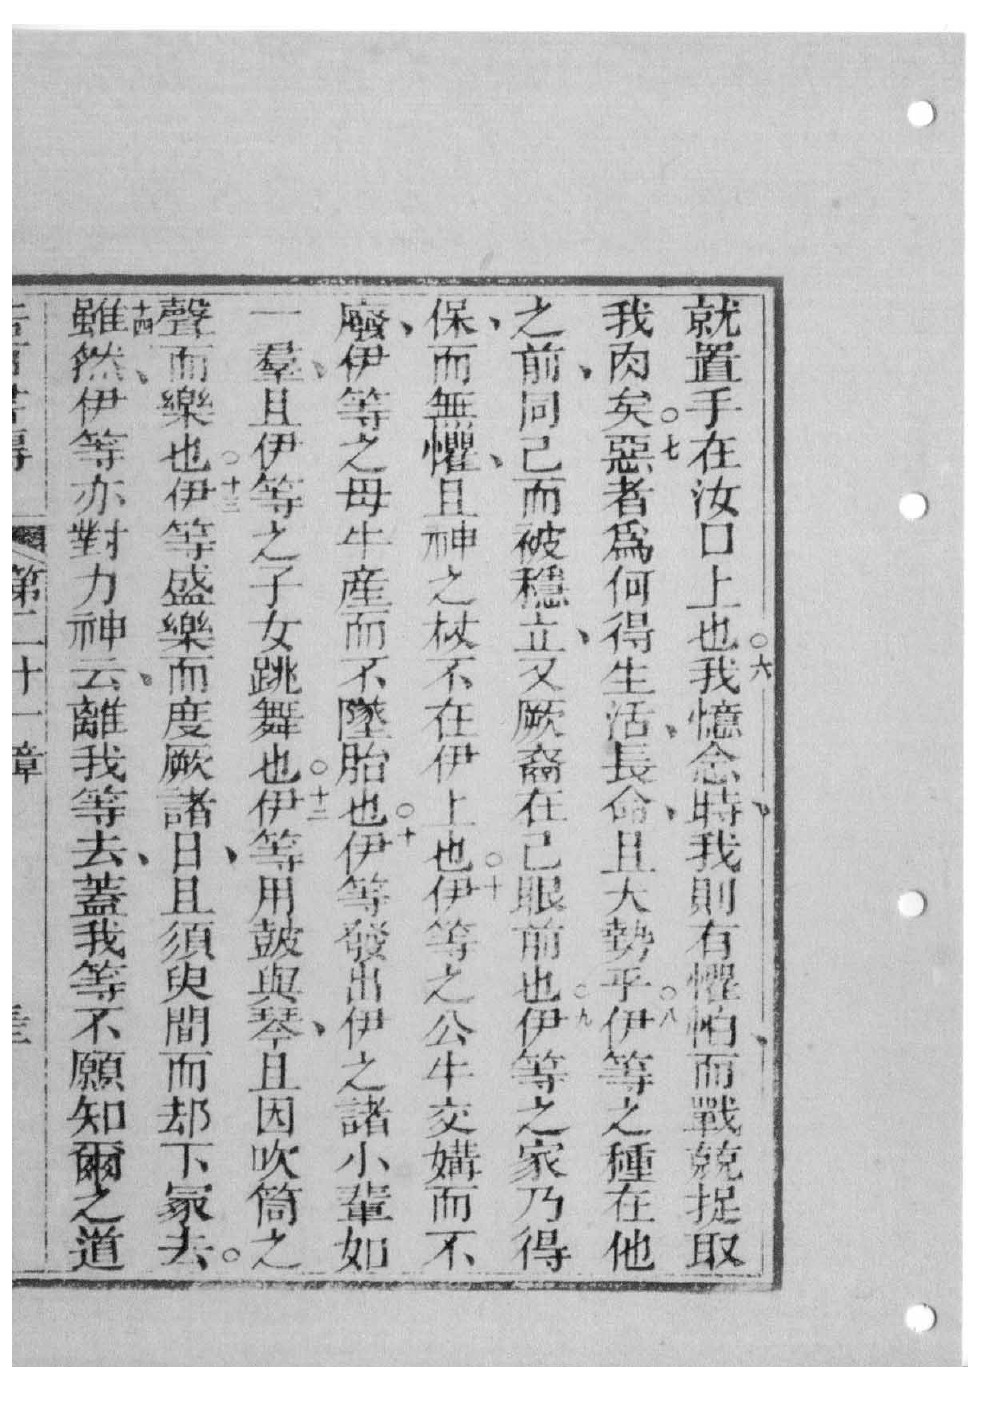 就置手在汝口上也○六我憶念時、我則有懼怕、而戰兢捉取
我肉矣○七惡者爲何得生活、長命、且大勢乎○八伊等之種在他
之前、同己而被穩立、又厥裔在己眼前也○九伊等之家乃得
保、而無懼、且神之杖不在伊上也○十伊等之公牛交媾而不
廢、伊等之母牛產而不墜胎也○十伊等發出伊之諸小輩如
一羣、且伊等之子女跳舞也○十二伊等用鼓與琴、且因吹筒之
聲而樂也○十三伊等盛樂而度厥諸日、且須臾間而却下冢去。
十四雖然、伊等亦對力神云、離我等去、蓋我等不願知爾之道
第二十一章